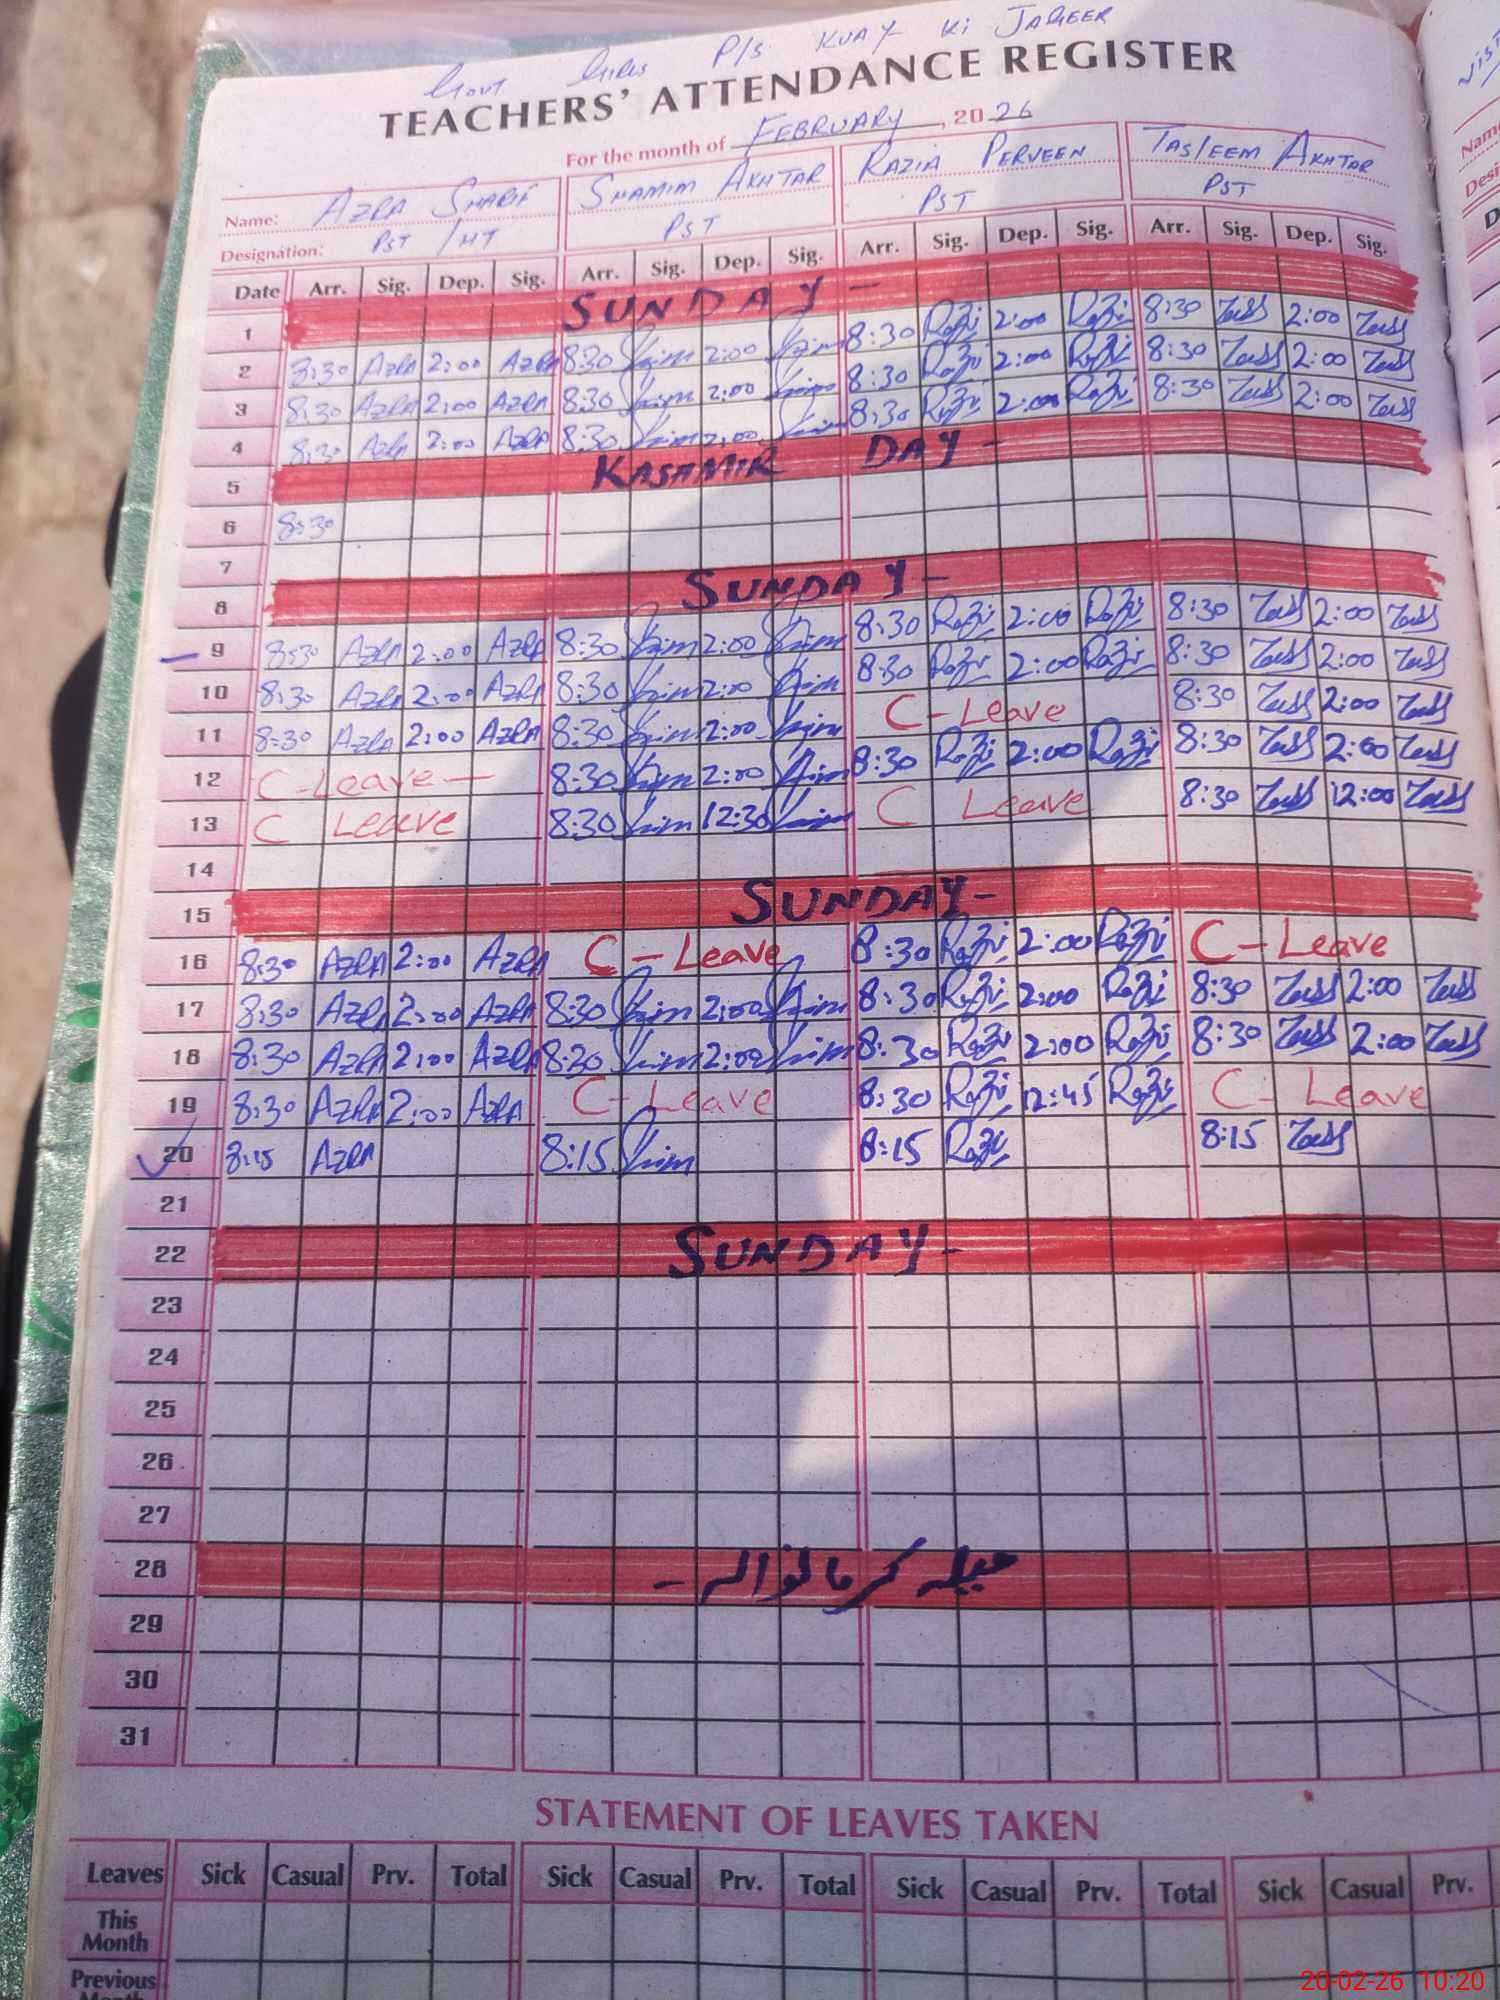 Govt Girls P/S KUAY Ki JAGEER
TEACHERS' ATTENDANCE REGISTER
For the month of FEBRUARY, 2026
Name: AZRA SHARIF SHAMIM AKHTAR RAZIA PERVEEN TASLEEM AKHTAR
Designation: PST /HT PST PST PST
Date Arr. Sig. Dep. Sig. Arr. Sig. Dep. Sig. Arr. Sig. Dep. Sig. Arr. Sig. Dep. Sig.
1 SUNDAY -
2 8:30 AZRA 2:00 AZRA 8:30 2:00 8:30 Razi 2:00 Razi 8:30 2:00
3 8:30 AZRA 2:00 AZRA 8:30 2:00 8:30 Razi 2:00 Razi 8:30 2:00
4 8:30 AZRA 2:00 AZRA 8:30 2:00 8:30 Razi 2:00 Razi 8:30 2:00
5 KASHMIR DAY -
6 8:30
7
8 SUNDAY -
9 8:30 AZRA 2:00 AZRA 8:30 2:00 8:30 Razi 2:00 Razi 8:30 2:00
10 8:30 AZRA 2:00 AZRA 8:30 2:00 8:30 Razi 2:00 Razi 8:30 2:00
11 8:30 AZRA 2:00 AZRA 8:30 2:00 C - Leave 8:30 2:00
12 C - Leave — 8:30 2:00 8:30 Razi 2:00 Razi 8:30 2:00
13 C LEAVE 8:30 12:30 C Leave 8:30 12:00
14
15 SUNDAY -
16 8:30 AZRA 2:00 AZRA C - Leave 8:30 Razi 2:00 Razi C - Leave
17 8:30 AZRA 2:00 AZRA 8:30 2:00 8:30 Razi 2:00 Razi 8:30 2:00
18 8:30 AZRA 2:00 AZRA 8:30 2:00 8:30 Razi 2:00 Razi 8:30 2:00
19 8:30 AZRA 2:00 AZRA C - Leave 8:30 Razi 12:45 Razi C - Leave
20 8:15 AZRA 8:15 8:15 Razi 8:15
21
22 SUNDAY -
23
24
25
26
27
28 میلہ کرمانوالہ -
29
30
31
STATEMENT OF LEAVES TAKEN
Leaves Sick Casual Prv. Total Sick Casual Prv. Total Sick Casual Prv. Total Sick Casual Prv.
This Month
Previous Month
20-02-26 10:20